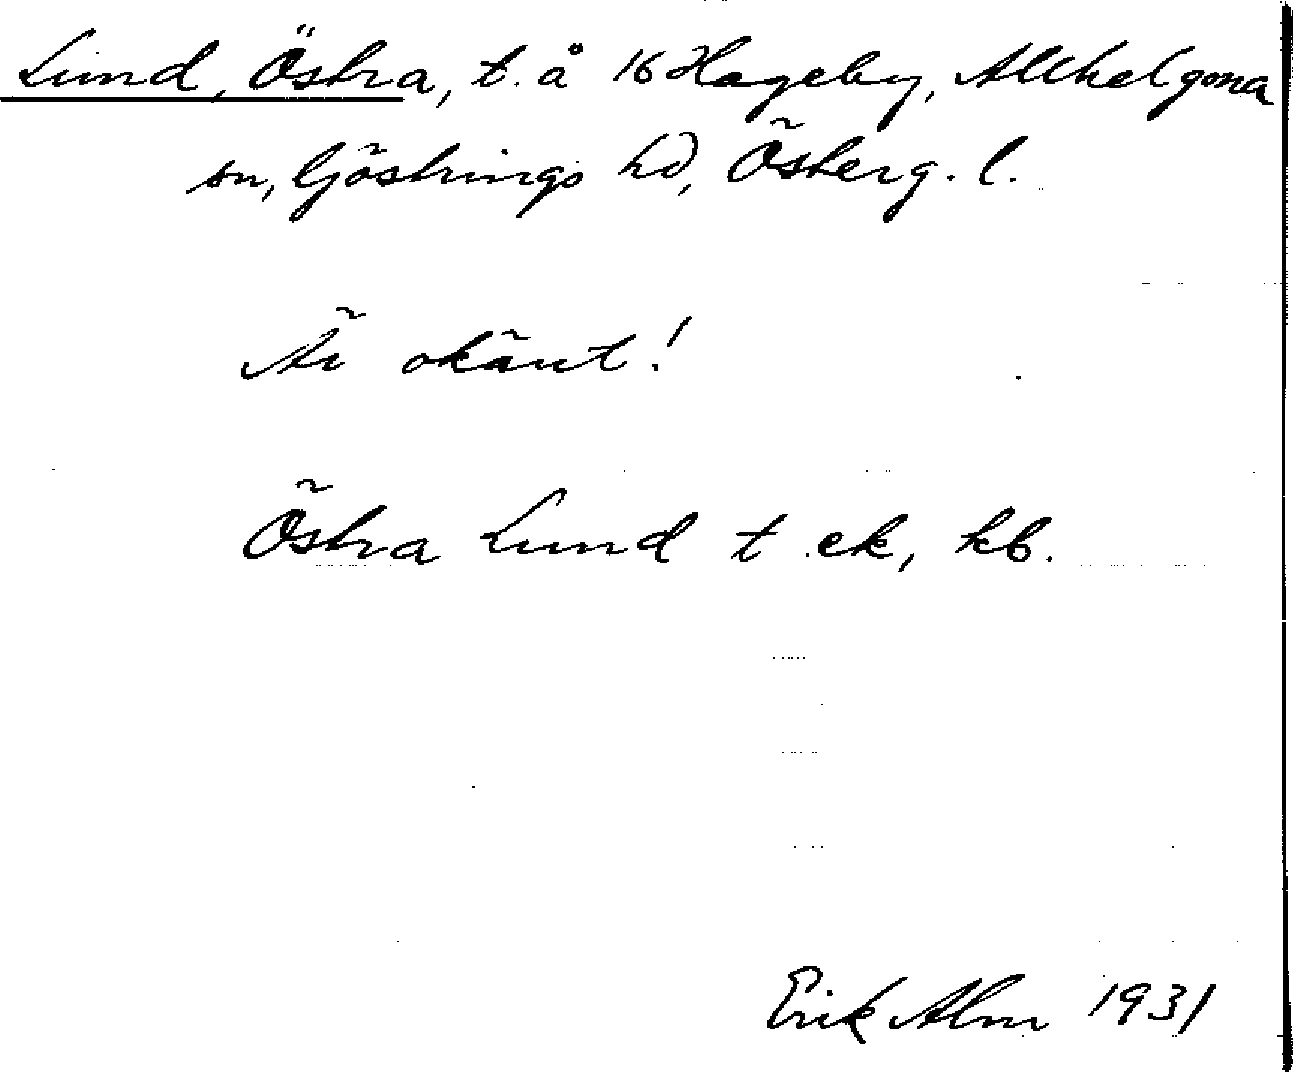 Lund, Östra, t. å 16 Hageby, Allhelgona
sn, Göstrings hd, Österg. l.
Är okänt!
Östra Lund t ek, kb.
Erik Alm 1931